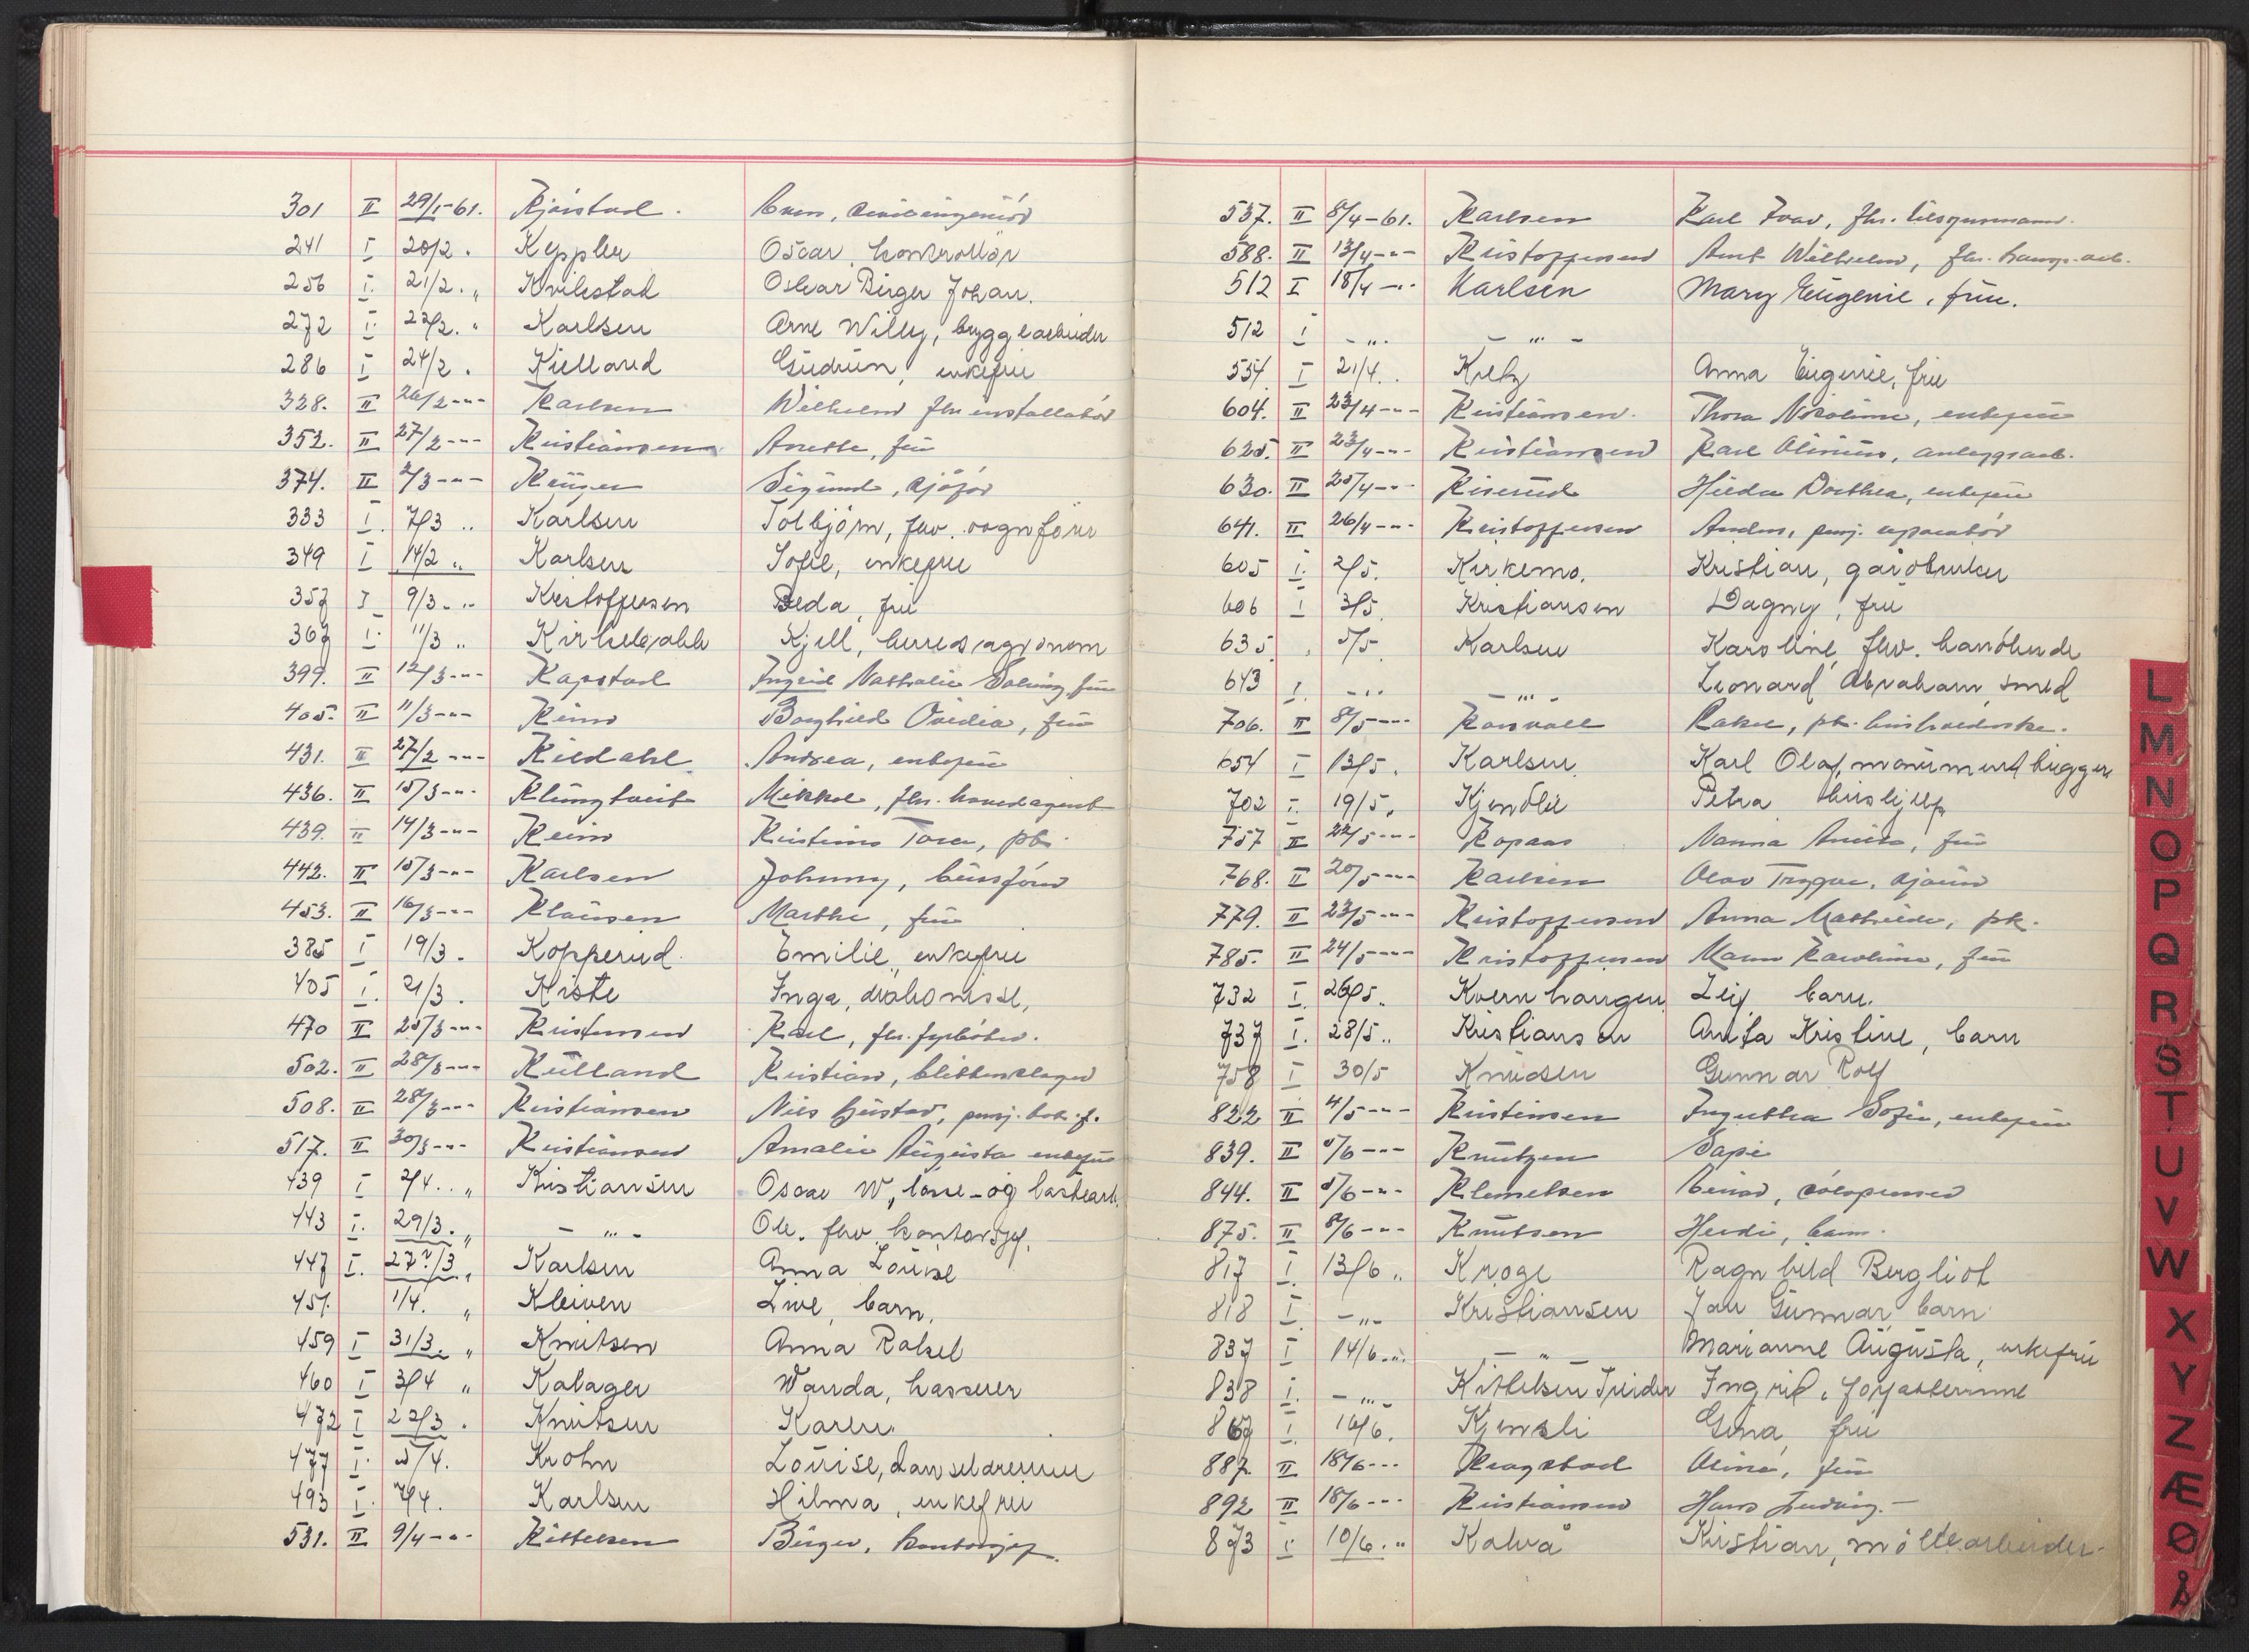 301 II 29/1-61. Kjørstad.
241 I 20/2. Keppler Oscar, kontrollør
256 I. 21/2. „ Kvilestad Oskar Birger Johan.
272 I. 22/2. " Karlsen Arne Willy, byggearbeider
286 I 24/2. Kielland Gudrun, enkefru
328. II 26/2-"- Karlsen Wilhelm fhv installatør
352. II 27/2-"- Kristiansen Anette, fru
374. II 2/3-"- Krüger Sigurd, sjåfør
333 I. 7/3 .. Karlsen Tolbjørn, fhv. vognfører
349 I 14/2 „ Karlsen Sofie, enkefru
357 I 9/3-.. Kristoffersen Beda, fru
367 I. 11/3 .. Kjell, herredsagronom
399. II 12/3-"- Kapstad Ingrid Nathalie fru
405. II 11/3-"- Borghild Ovidia, fru
431. II 27/2-"- Kildahl Andrea, enkefru
436. II 15/3-"- Klungtveit Mikkel, fhv. hovedagent
439. II 14/3-"- Keim Kristine Tora, pk.
442. II 15/3-"- Karlsen Johnny, bussfører
453. II 16/3-"- Klausen Marthe, fru
385 I 19/3. Kopperud. Emilie, enkefru
405 I. 21/3. Kiste Inga, diakonisse,
470 II 25/3-"- Kristensen Karl, fhv. fyrbøter.
502. II 28/3-"- Kulland Kristian, blikkenslager
508. II 28/3-"- Kristiansen Nils Gustav, pensj.
517. II 30/3-"- Kristiansen Amalie Augusta enkefru
439 I 2/4.. „ Kristiansen Oscar W, losse- og lastearb.
443 I. 29/3. „ - "' - Ole. fhv. kontorsjef.
447 I. 27?/3 „ Karlsen Anna Louise
451. 1/4. „ Kleiven Live, barn.
459 I 31/3. „ Knutsen Anna Rakel
460 I 3/4 „ Kalager Wanda, kasserer
472 I 22/3. Knutsen Karen.
477 I. 5/4. Krohn Louise, danselærerinne
493 I. 7/4. Karlsen Hilma, enkefru
531. II 9/4-"- Kittelsen Birger, kontorsjef.
537. II 8/4-61. Karlsen Karl Ivar, fhv.
588. II 13/4-"- Kristoffersen Arnt Wilhelm, fhv.
512 I 18/4-.. Karlsen Mary Eugenie, fru.
512 I - „. - "' -
554 I 21/4.. Anna Eugenie, fru
604. II 23/4-"- Kristiansen. Thora Nicoline, enkefru
625. II 23/4-"- Kristiansen Karl anleggsarb.
630. II 25/4-"- Kiserud Hilda Dorthea, enkefru
641. II 26/4-"- Kristoffersen Anders, pensj. reparatør
605 I. 2/5. Kirkemo. Kristian, gårdbruker
606 I 3/5. Kristiansen Dagny, fru
635 . 5/5. Karlsen Karoline, fhv. handlende
643 I. -.. - "' - Leonard Abraham, smed
706. II 8/5-"- Korsvoll Rakel, pk.
654 I 13/5. Karlsen Karl Olaf, monumentbygger
702 I. 19/5. Kjendlie Petra hushjelp
757 II 22/5-"- Kopaas Nanna fru
768. II 20/5-"- Karlsen Olav Trygve,
779. II 23/5-"- Kristoffersen Anna Mathilde, pk.
785. II 24/5-"- Kristoffersen Karoline, fru
732 I. 26/5. Kvernhaugen Leif barn.
737 I. 28/5.. Kristiansen Anita Kristine, barn
758 I 30/5 Knudsen Gunnar Rolf
822 II 4/5-"- Kristensen Sofie, enkefru
839. II 5/6-"- Knutzen
844. II 5/6-"- Klemetsen Einar,
875. II 8/6-"- Knutsen Heidi, barn.
817 I. 13/6.. Kroge Ragnhild Bergliot
818 I. -„- Kristiansen Jan Gunnar, barn
837 I 14/6.. - „ - Marianne Augusta, enkefru
838 I. -„- Kittelsen Treider Ingrid, forfatterinne
867 I. 16/6. Kjensli Gina, fru
887. II 18/6-"- Krogstad fru
892 II 18/6-"- Kristiansen Hans Ludvig.-
873 I. 10/6.. Kalvå Kristian, møllearbeider
L
M
N
O
P
Q
R
S
T
U
V
W
X
Y
Z
Æ
Ø
Å